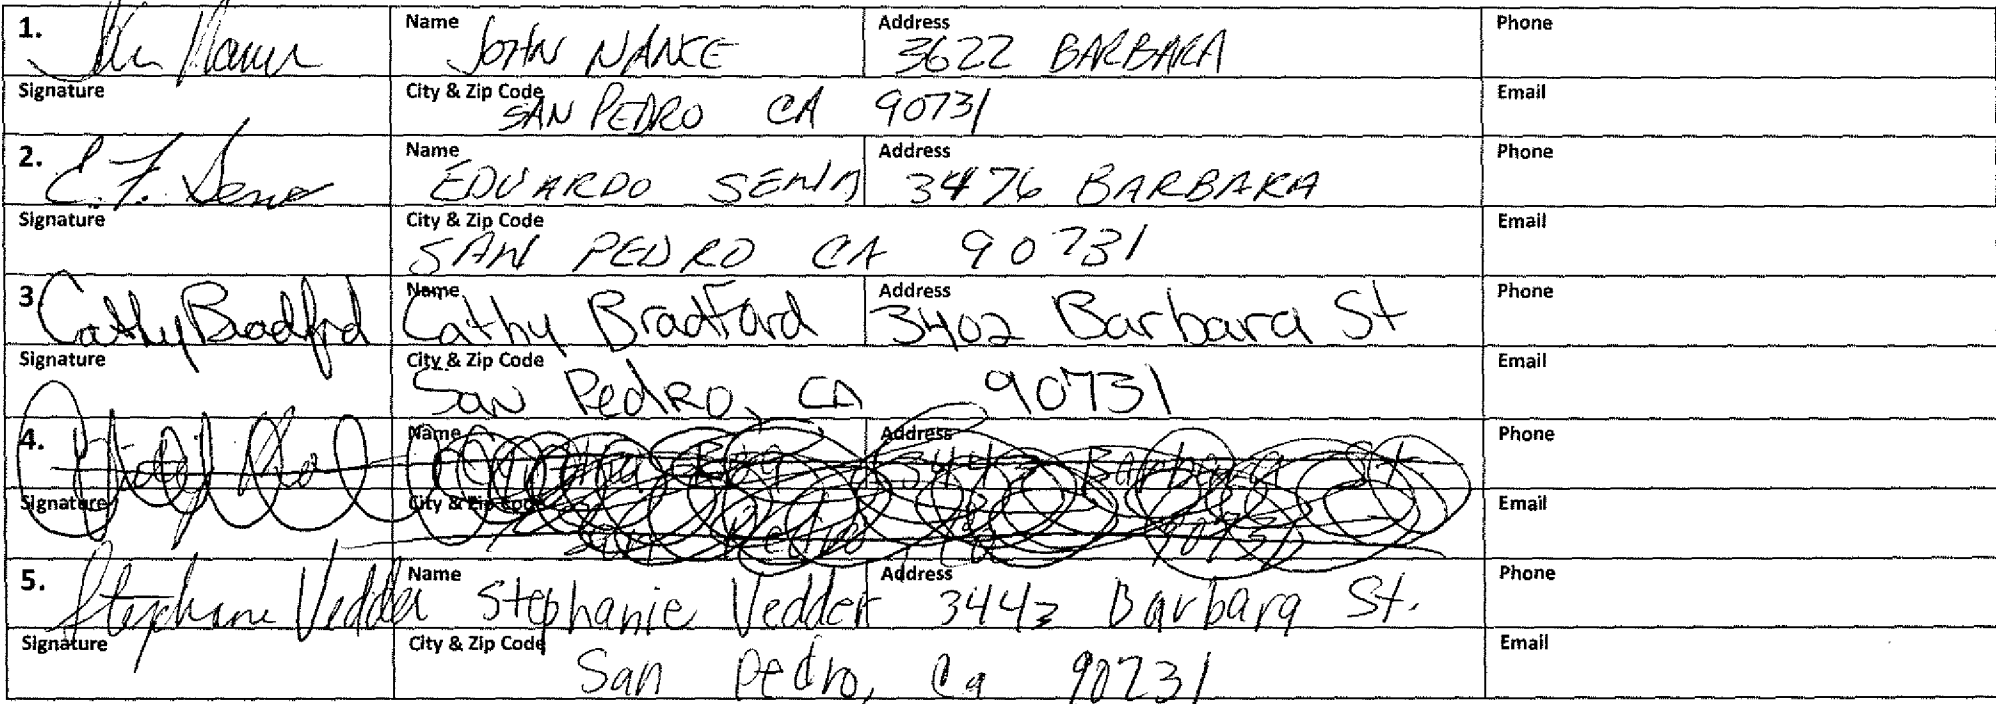 1. Name JOHN NANCE Address 3622 BARBARA Phone
Signature City & Zip Code SAN PEDRO CA 90731 Email
2. E.F. Sena Name EDUARDO SENA Address 3476 BARBARA Phone
Signature City & Zip Code SAN PEDRO CA 90731 Email
3. Cathy Bradford Name Cathy Bradford Address 3402 Barbara St Phone
Signature City & Zip Code San Pedro, CA 90731 Email
4. Name Address 3443 Barbara St Phone
Signature City & Zip Code San Pedro, Ca 90731 Email
5. Stephanie Vedder Name Stephanie Vedder Address 3443 Barbara St. Phone
Signature City & Zip Code San Pedro, Ca 90731 Email